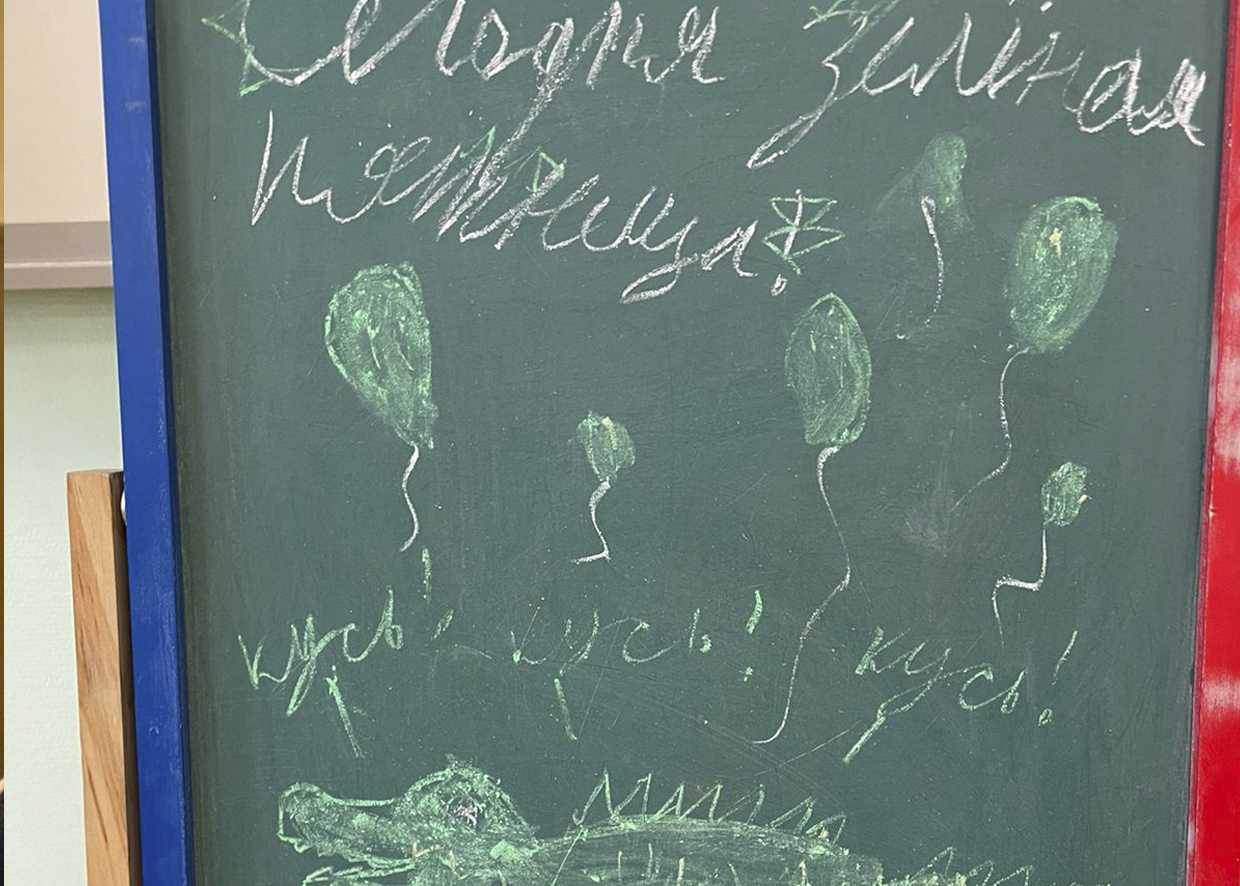 Сегодня зелёная
пятница!
кусь! кусь! кусь!